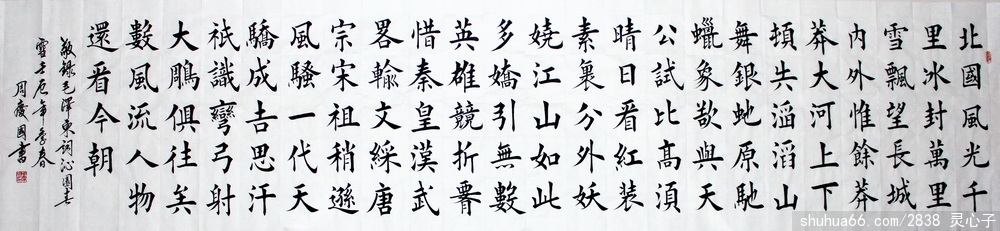 北國風光千
里冰封萬里
雪飄望長城
内外惟餘莽
莽大河上下
頓失滔滔山
舞銀虵原馳
蠟象欲與天
公試比高須
晴日看紅装
素裹分外妖
嬈江山如此
多嬌引無數
英雄競折
惜秦皇漢武
畧輸文綵唐
宗宋祖稍遜
風騷一代天
驕成吉思汗
祇識彎弓射
大鵰俱往矣
數風流人物
還看今朝
敬錄毛澤東詞沁園春
雪壬辰年季春
周慶國書
shuhua66.com/2838 灵心子